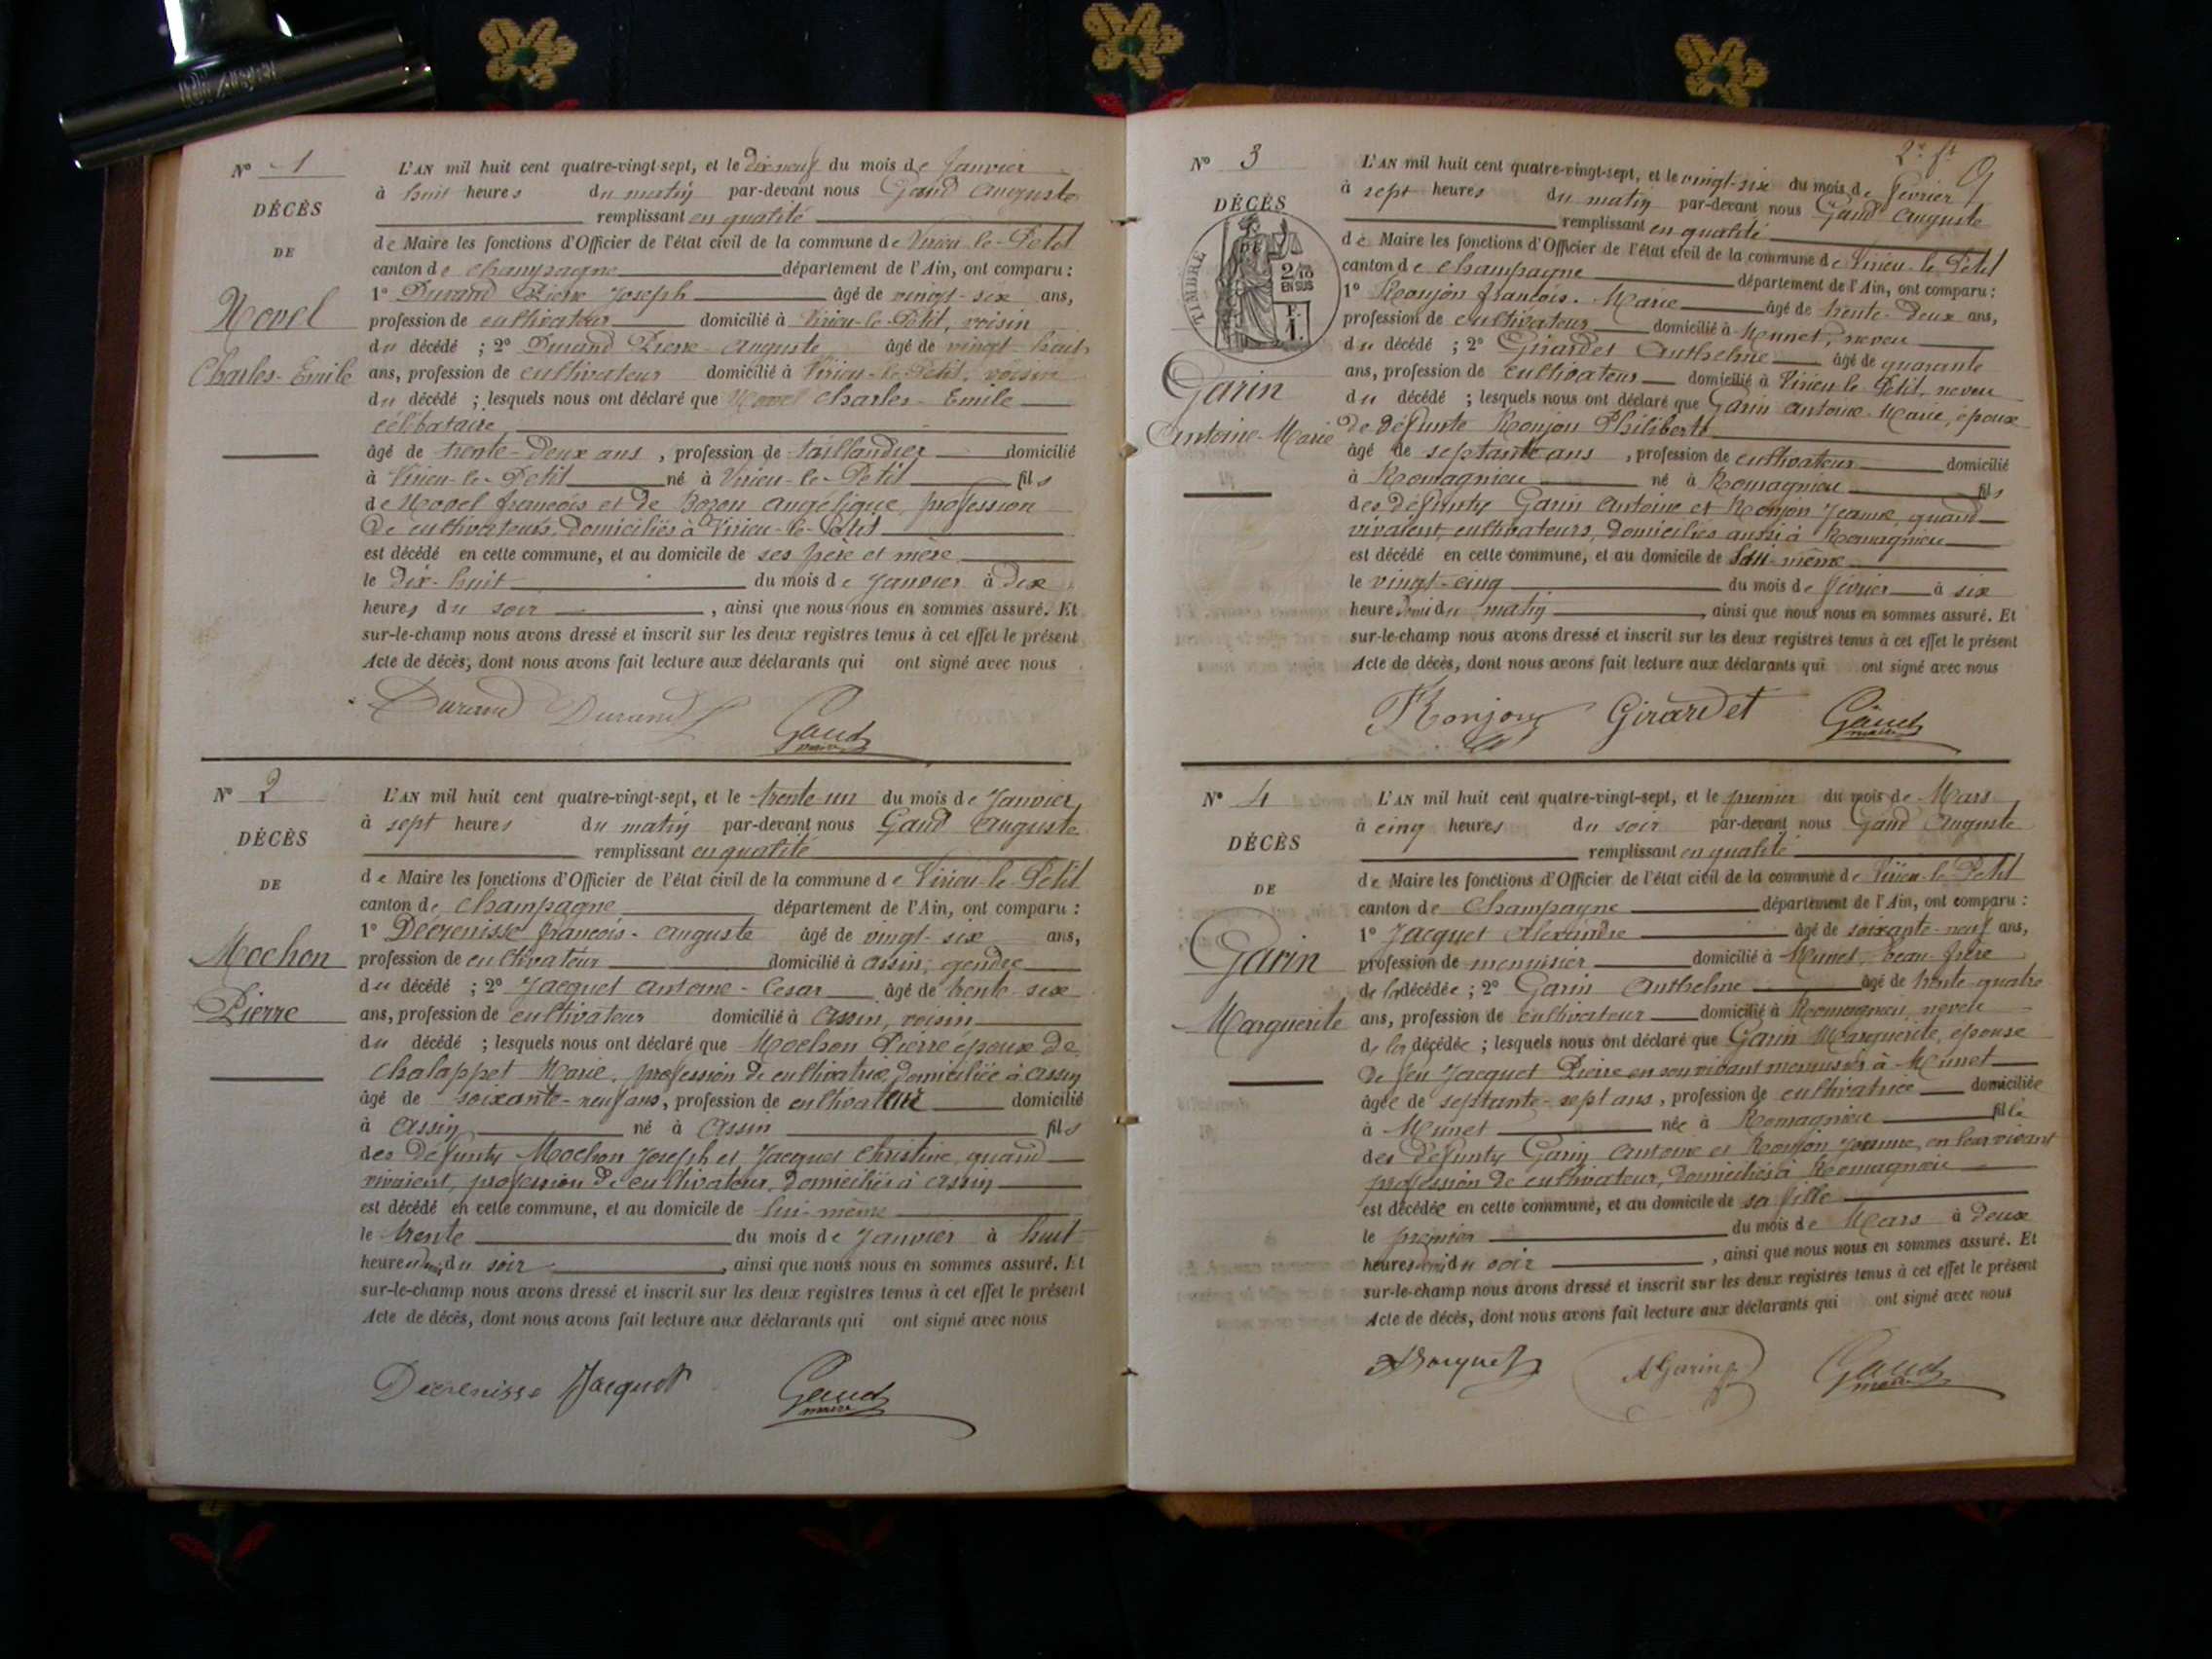 N° 1
DÉCÈS
DE
Novel
Charles-Emile
L'AN mil huit cent quatre-vingt-sept, et le dix neuf du mois de Janvier
à huit heures du matin par-devant nous Gaud Auguste
remplissant en qualité
de Maire les fonctions d'Officier de l'état civil de la commune de Virieu-le-Petit
canton de Champagne département de l'Ain, ont comparu :
1° Durand Pierre Joseph âgé de vingt-six ans,
profession de cultivateur domicilié à Virieu-le-Petit, voisin
du décédé ; 2° Durand Pierre-Auguste âgé de vingt-huit
ans, profession de cultivateur domicilié à Virieu-le-Petit, voisin
du décédé ; lesquels nous ont déclaré que Novel Charles-Emile
célibataire,
âgé de trente-deux ans, profession de taillandier domicilié
à Virieu-le-Petit né à Virieu-le-Petit fils
de Novel françois et de Bozon Angélique, profession
de cultivateurs, domiciliés à Virieu-le-Petit
est décédé en cette commune, et au domicile de ses père et mère,
le dix-huit du mois de Janvier à dix
heures du soir, ainsi que nous nous en sommes assuré. Et
sur-le-champ nous avons dressé et inscrit sur les deux registres tenus à cet effet le présent
Acte de décès, dont nous avons fait lecture aux déclarants qui ont signé avec nous
Durand Durand Gaud
maire
N° 2
DÉCÈS
DE
Mochon
Pierre
L'AN mil huit cent quatre-vingt-sept, et le trente-un du mois de Janvier,
à sept heures du matin par-devant nous Gaud Auguste
remplissant en qualité
de Maire les fonctions d'Officier de l'état civil de la commune de Virieu-le-Petit
canton de Champagne département de l'Ain, ont comparu :
1° Decrenisse françois-Auguste âgé de vingt-six ans,
profession de cultivateur domicilié à Assin, gendre
du décédé ; 2° Jacquet Antoine-Cesar âgé de trente-six
ans, profession de cultivateur domicilié à Assin, voisin
du décédé ; lesquels nous ont déclaré que Mochon Pierre époux de
Chalappet Marie, profession de cultivatrice, domiciliée à Assin
âgé de soixante-neuf ans, profession de cultivateur domicilié
à Assin né à Assin fils
des défunts Mochon Joseph et Jacquet Christine, quand
vivaient, profession de cultivateur, domiciliés à Assin
est décédé en cette commune, et au domicile de lui-même
le trente du mois de Janvier à huit
heures demi du soir, ainsi que nous nous en sommes assuré. Et
sur-le-champ nous avons dressé et inscrit sur les deux registres tenus à cet effet le présent
Acte de décès, dont nous avons fait lecture aux déclarants qui ont signé avec nous
Decrenisse Jacquet Gaud
maire
2e ft
N° 3
DÉCÈS
DE
TIMBRE
2/10
EN SUS
F.
1.
Garin
Antoine-Marie
L'AN mil huit cent quatre-vingt-sept, et le vingt-six du mois de février
à sept heures du matin par-devant nous Gaud Auguste
remplissant en qualité
de Maire les fonctions d'Officier de l'état civil de la commune de Virieu-le-Petit
canton de Champagne département de l'Ain, ont comparu :
1° Ronjon françois-Marie âgé de trente-deux ans,
profession de cultivateur domicilié à Munet, neveu
du décédé ; 2° Girardet Anthelme âgé de quarante
ans, profession de cultivateur domicilié à Virieu-le-Petit, neveu
du décédé ; lesquels nous ont déclaré que Garin Antoine-Marie, époux
de défunte Ronjon Philiberte
âgé de septante ans, profession de cultivateur domicilié
à Romagnieu né à Romagnieu fils
des défunts Garin Antoine et Ronjon Jeanne, quand
vivaient, cultivateurs, domiciliés aussi à Romagnieu
est décédé en cette commune, et au domicile de lui-même
le vingt-cinq du mois de février à six
heures demi du matin, ainsi que nous nous en sommes assuré. Et
sur-le-champ nous avons dressé et inscrit sur les deux registres tenus à cet effet le présent
Acte de décès, dont nous avons fait lecture aux déclarants qui ont signé avec nous
Ronjon Girardet Gaud
maire
N° 4
DÉCÈS
DE
Garin
Marguerite
L'AN mil huit cent quatre-vingt-sept, et le premier du mois de Mars
à cinq heures du soir par-devant nous Gaud Auguste
remplissant en qualité
de Maire les fonctions d'Officier de l'état civil de la commune de Virieu-le-Petit
canton de Champagne département de l'Ain, ont comparu :
1° Jacquet Alexandre âgé de soixante-neuf ans,
profession de menuisier domicilié à Munet, beau-frère
de la décédée ; 2° Garin Anthelme âgé de trente-quatre
ans, profession de cultivateur domicilié à Romagnieu, neveu
de la décédée ; lesquels nous ont déclaré que Garin Marguerite, épouse
de feu Jacquet Pierre en son vivant menuisier à Munet
âgée de septante-sept ans, profession de cultivatrice domiciliée
à Munet née à Romagnieu fille
des défunts Garin Antoine et Ronjon Jeanne, en leur vivant
profession de cultivateur, domiciliés à Romagnieu
est décédée en cette commune, et au domicile de sa fille
le premier du mois de Mars à deux
heures demi du soir, ainsi que nous nous en sommes assuré. Et
sur-le-champ nous avons dressé et inscrit sur les deux registres tenus à cet effet le présent
Acte de décès, dont nous avons fait lecture aux déclarants qui ont signé avec nous
AJacquet AGarin Gaud
maire